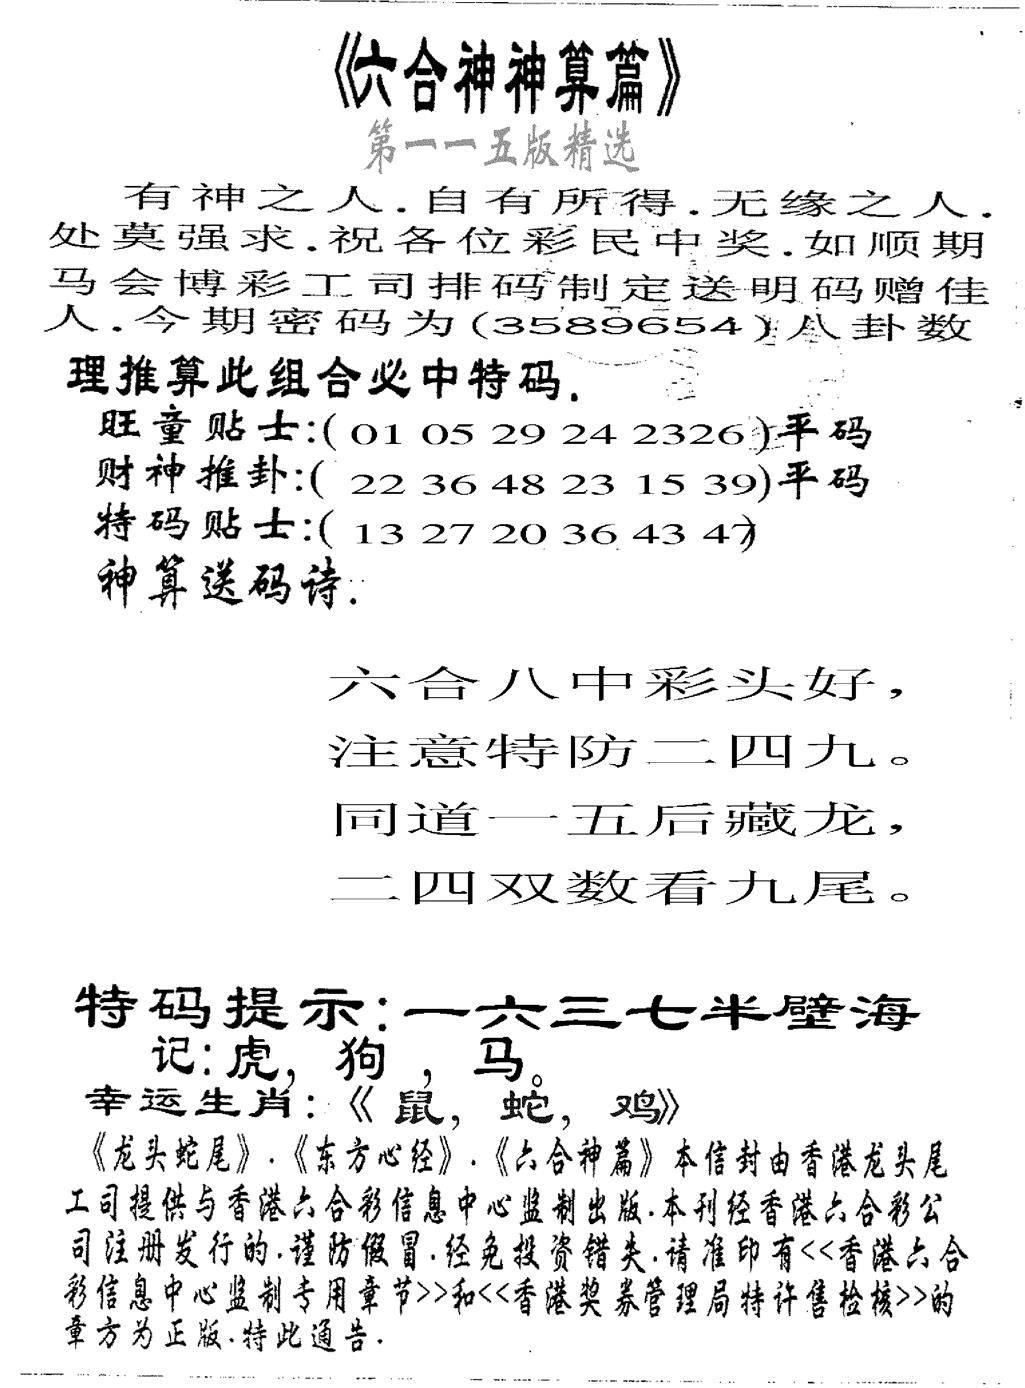 《六合神神算篇》
第一一五版精选
有神之人.自有所得.无缘之人.
处莫强求.祝各位彩民中奖.如顺期
马会博彩工司排码制定送明码赠佳
人.今期密码为(3589654)八卦数
理推算此组合必中特码.
旺童贴士:( 01 05 29 24 2326 )平码
财神推卦:( 22 36 48 23 15 39)平码
特码贴士:( 13 27 20 36 43 47)
神算送码诗.
六合八中彩头好,
注意特防二四九。
同道一五后藏龙,
二四双数看九尾。
特码提示:一六三七半壁海
记:虎, 狗 , 马。
幸运生肖:《 鼠, 蛇, 鸡》
《龙头蛇尾》.《东方心经》.《六合神篇》本信封由香港龙头尾
工司提供与香港六合彩信息中心监制出版.本刊经香港六合彩公
司注册发行的.谨防假冒.经免投资错失.请准印有<<香港六合
彩信息中心监制专用章节>>和<<香港奖券管理局特许售检核>>的
章方为正版.特此通告.